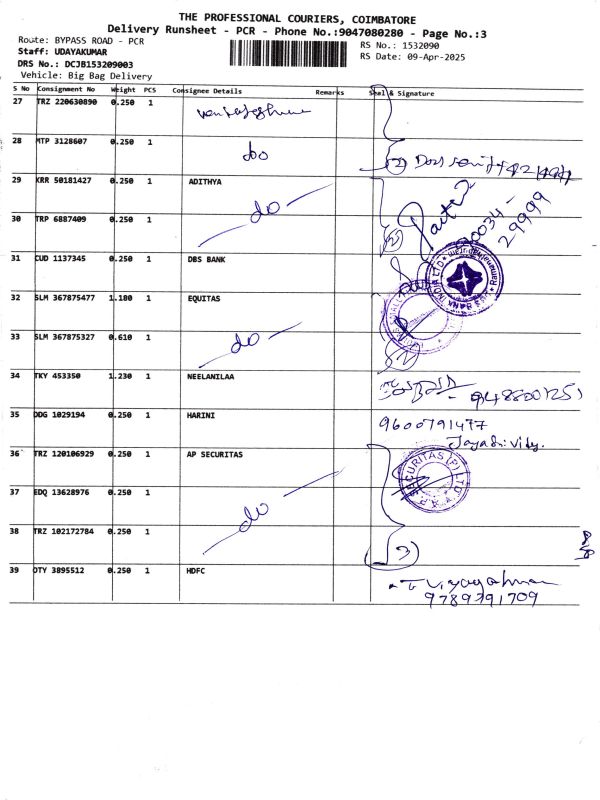 THE PROFESSIONAL COURIERS, COIMBATORE
Delivery Runsheet - PCR - Phone No.:9047080280 - Page No.:3
Route: BYPASS ROAD - PCR
RS No.: 1532090
Staff: UDAYAKUMAR
RS Date: 09-Apr-2025
DRS No.: DCJB153209003
Vehicle: Big Bag Delivery
S No Consignment No Weight PCS Consignee Details Remarks Seal & Signature
27 TRZ 220630890 0.250 1
28 MTP 3128607 0.250 1 do
29 KRR 50181427 0.250 1 ADITHYA
30 TRP 6887409 0.250 1 do
31 CUD 1137345 0.250 1 DBS BANK
32 SLM 367875477 1.180 1 EQUITAS
33 SLM 367875327 0.610 1 do
34 TKY 453350 1.230 1 NEELANILAA
35 DDG 1029194 0.250 1 HARINI 9600791477
36 TRZ 120106929 0.250 1 AP SECURITAS
37 EDQ 13628976 0.250 1
38 TRZ 102172784 0.250 1 do
39 OTY 3895512 0.250 1 HDFC
9789791709